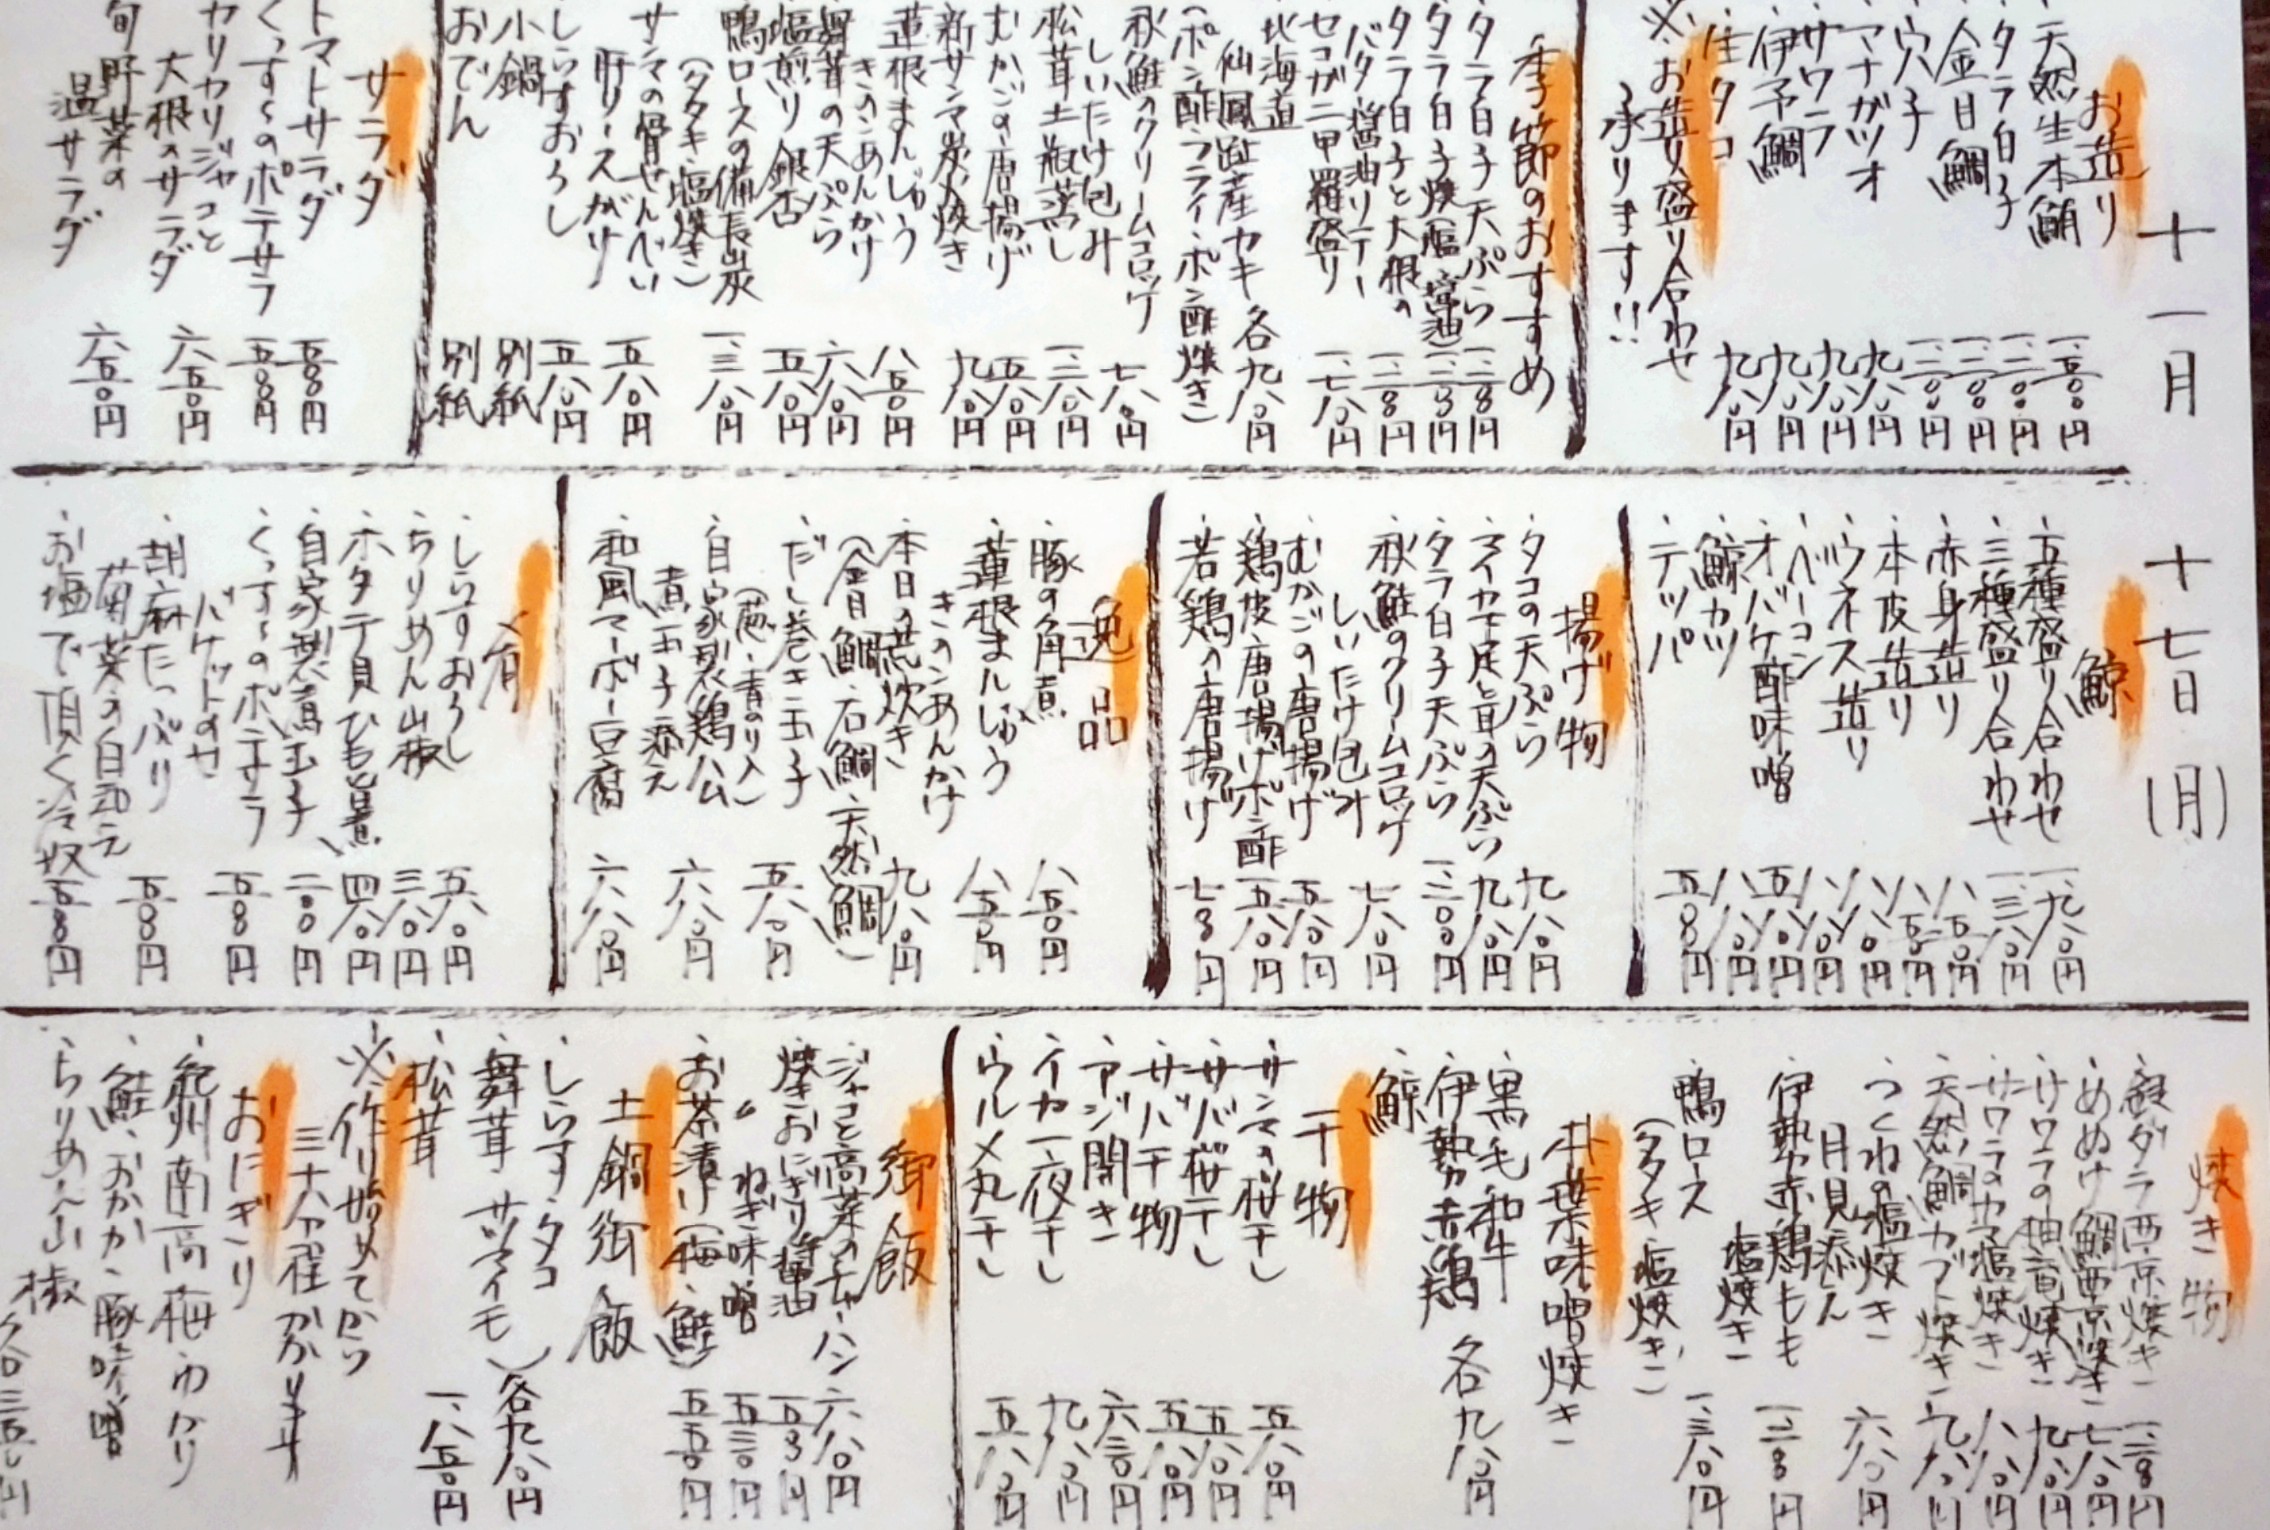 十一月 十七日(月)
お造り
・天然生本鮪 一、五〇〇円
・タラ白子 一、二〇〇円
・金目鯛 一、二〇〇円
・穴子 一、二〇〇円
・マナガツオ 九八〇円
・サワラ 九八〇円
・伊予鯛 九八〇円
・佳タコ 九八〇円
※お造り盛り合わせ
承ります!!
季節のおすすめ
・タラ白子天ぷら 一、二〇〇円
・タラ白子焼(塩・醤油) 一、二〇〇円
・タラ白子と大根の 一、二〇〇円
バタ醤油ソテー
・セコガニ甲羅盛り 一、七八〇円
・北海道
仙鳳趾産カキ 各九八〇円
(ポン酢・フライ・ポン酢焼き)
・秋鮭のクリームコロッケ
しいたけ包み 七八〇円
・松茸土瓶蒸し 一、三八〇円
・むかごの唐揚げ 五八〇円
・新サンマ炭火焼き 九八〇円
・蓮根まんじゅう
きのこあんかけ 八五〇円
・舞茸の天ぷら 六八〇円
・塩煎り銀杏 五八〇円
・鴨ロースの備長炭
(タタキ・塩焼き) 一、三八〇円
・サンマの骨せんべい
・肝リースがけ 五八〇円
・しらすおろし 五八〇円
・小鍋 別紙
・おでん 別紙
サラダ
・トマトサラダ 五八〇円
・くっすくのポテサラ 五八〇円
・カリカリジャコと
大根のサラダ 六五〇円
・旬野菜の
温サラダ 六五〇円
鯨
・五種盛り合わせ 一、九八〇円
・三種盛り合わせ 一、三八〇円
・赤身造り 八五〇円
・本皮造り 八五〇円
・ウネス造り 八八〇円
・ベーコン 八八〇円
・オバケ酢味噌 五八〇円
・鯨カツ 八八〇円
・テッパ 五八〇円
揚げ物
・タコの天ぷら 九八〇円
・マイカ下足と茸の天ぷら 九八〇円
・タラ白子天ぷら 一、二〇〇円
・秋鮭のクリームコロッケ
しいたけ包み 七八〇円
・むかごの唐揚げ 五八〇円
・鶏皮唐揚げポン酢 五八〇円
・若鶏の唐揚げ 七〇〇円
逸品
・豚の角煮 八五〇円
・蓮根まんじゅう
きのこあんかけ 八五〇円
・本日の荒炊き 九八〇円
(金目鯛・石鯛・天然鯛)
・だし巻き玉子
(葱・青のり入) 五八〇円
・自家製鶏ハム
煮玉子添え 六八〇円
・和風マーボー豆腐 六八〇円
肴
・しらすおろし 五八〇円
・ちりめん山椒 三八〇円
・ホタテ貝ひも旨煮 四八〇円
・自家製煮玉子 二〇〇円
・くっすくのポテサラ
バケットのせ 五八〇円
・胡麻たっぷり
菊菜の白和え 五八〇円
・お塩で頂く冷奴 五〇〇円
焼き物
・銀ダラ西京焼き 一、二〇〇円
・めぬけ鯛西京焼き 七八〇円
・サワラの柚庵焼き 九八〇円
・サワラのカマ塩焼き 八八〇円
・天然鯛カブト焼き 九八〇円
・つくねの塩焼き
月見添え 六八〇円
・伊勢赤鶏もも
塩焼き 一、二〇〇円
・鴨ロース
(タタキ・塩焼き) 一、三八〇円
朴葉味噌焼き
・黒毛和牛
・伊勢赤鶏 各九八〇円
・鯨
干物
・サンマの桜干し 五八〇円
・サバ桜干し 五八〇円
・サバ干物 五八〇円
・アジ開き 六三〇円
・イカ一夜干し 九八〇円
・ウルメ丸干し 五八〇円
御飯
・ジャコと高菜のチャーハン 六八〇円
・焼きおにぎり醤油 五〇〇円
・〃 ねぎ味噌 五三〇円
・お茶漬け(梅・鮭) 五五〇円
土鍋御飯
・しらす・タコ
・舞茸 サツマイモ 各九八〇円
・松茸 一、八五〇円
※作り始めてから
三十分程かかります
おにぎり
・紀州南高梅・ゆかり
・鮭・おかか・豚味噌
・ちりめん山椒